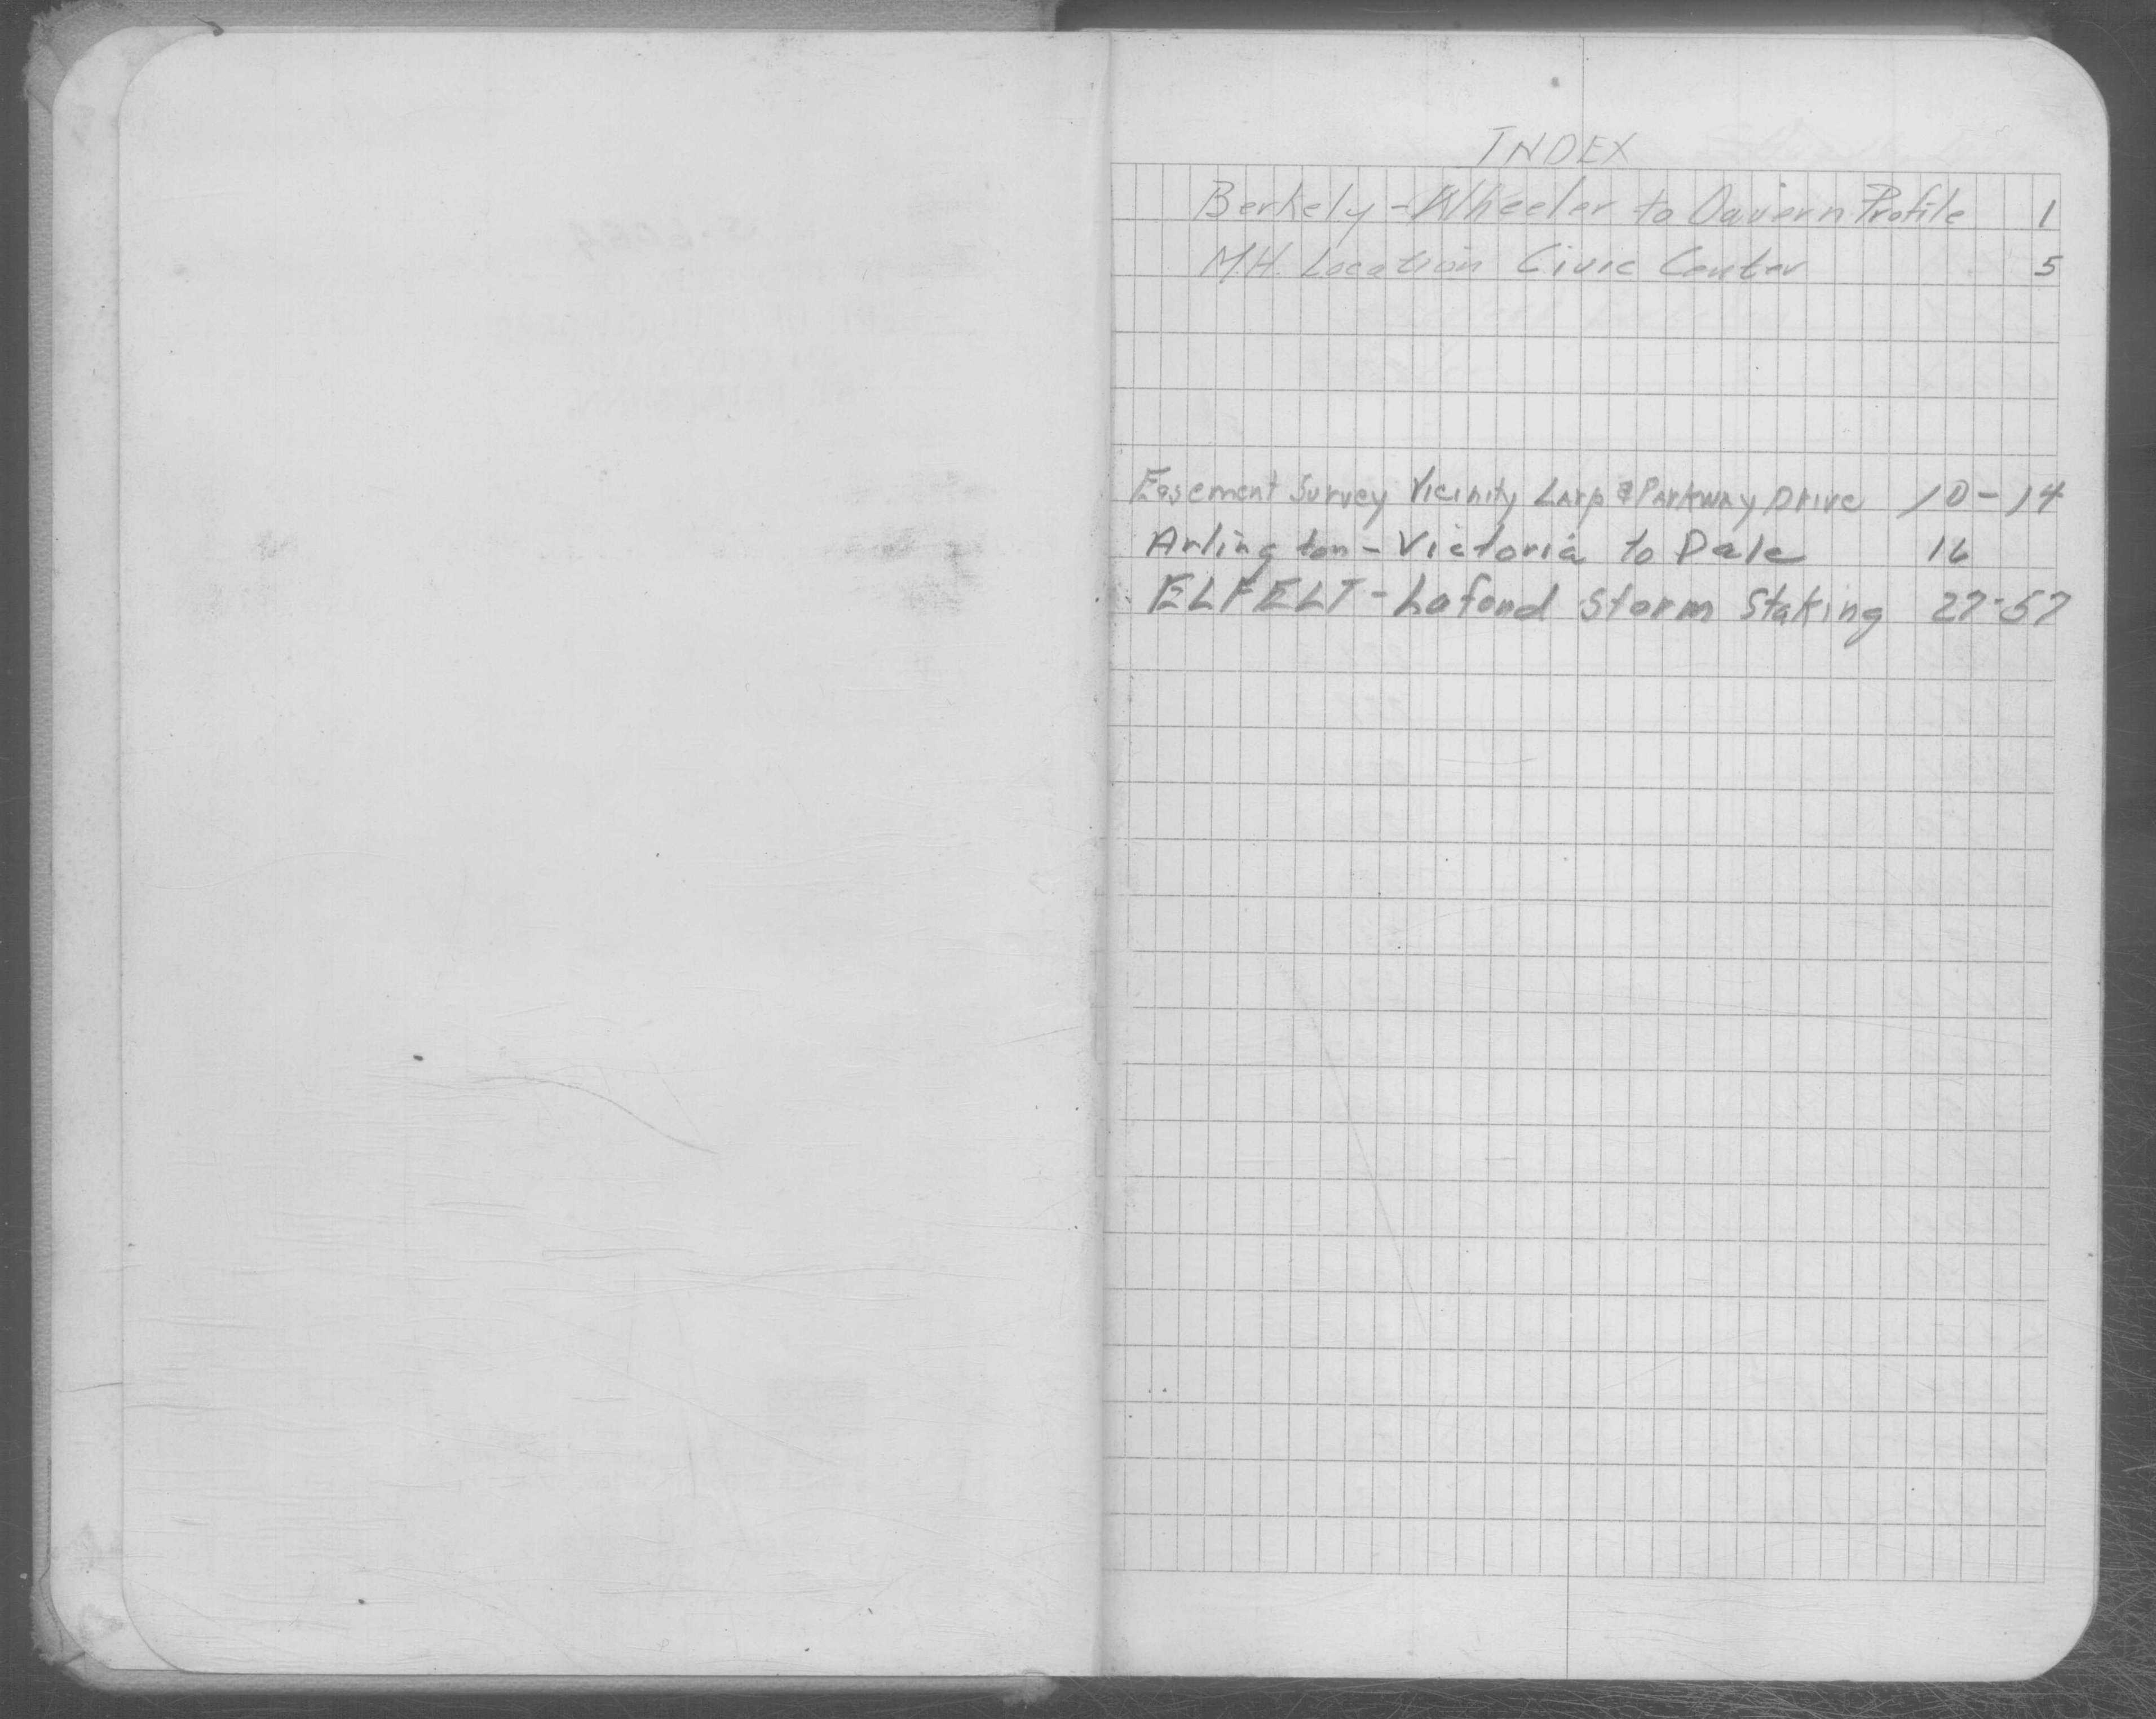 INDEX
Berkely - Wheeler to Davern Profile 1
M.H. Location Civic Center 5
Easement Survey Vicinity Larp & Parkway Drive 10-14
Arlington - Victoria to Dale 16
ELFELT - Lafond Storm Staking 27-57